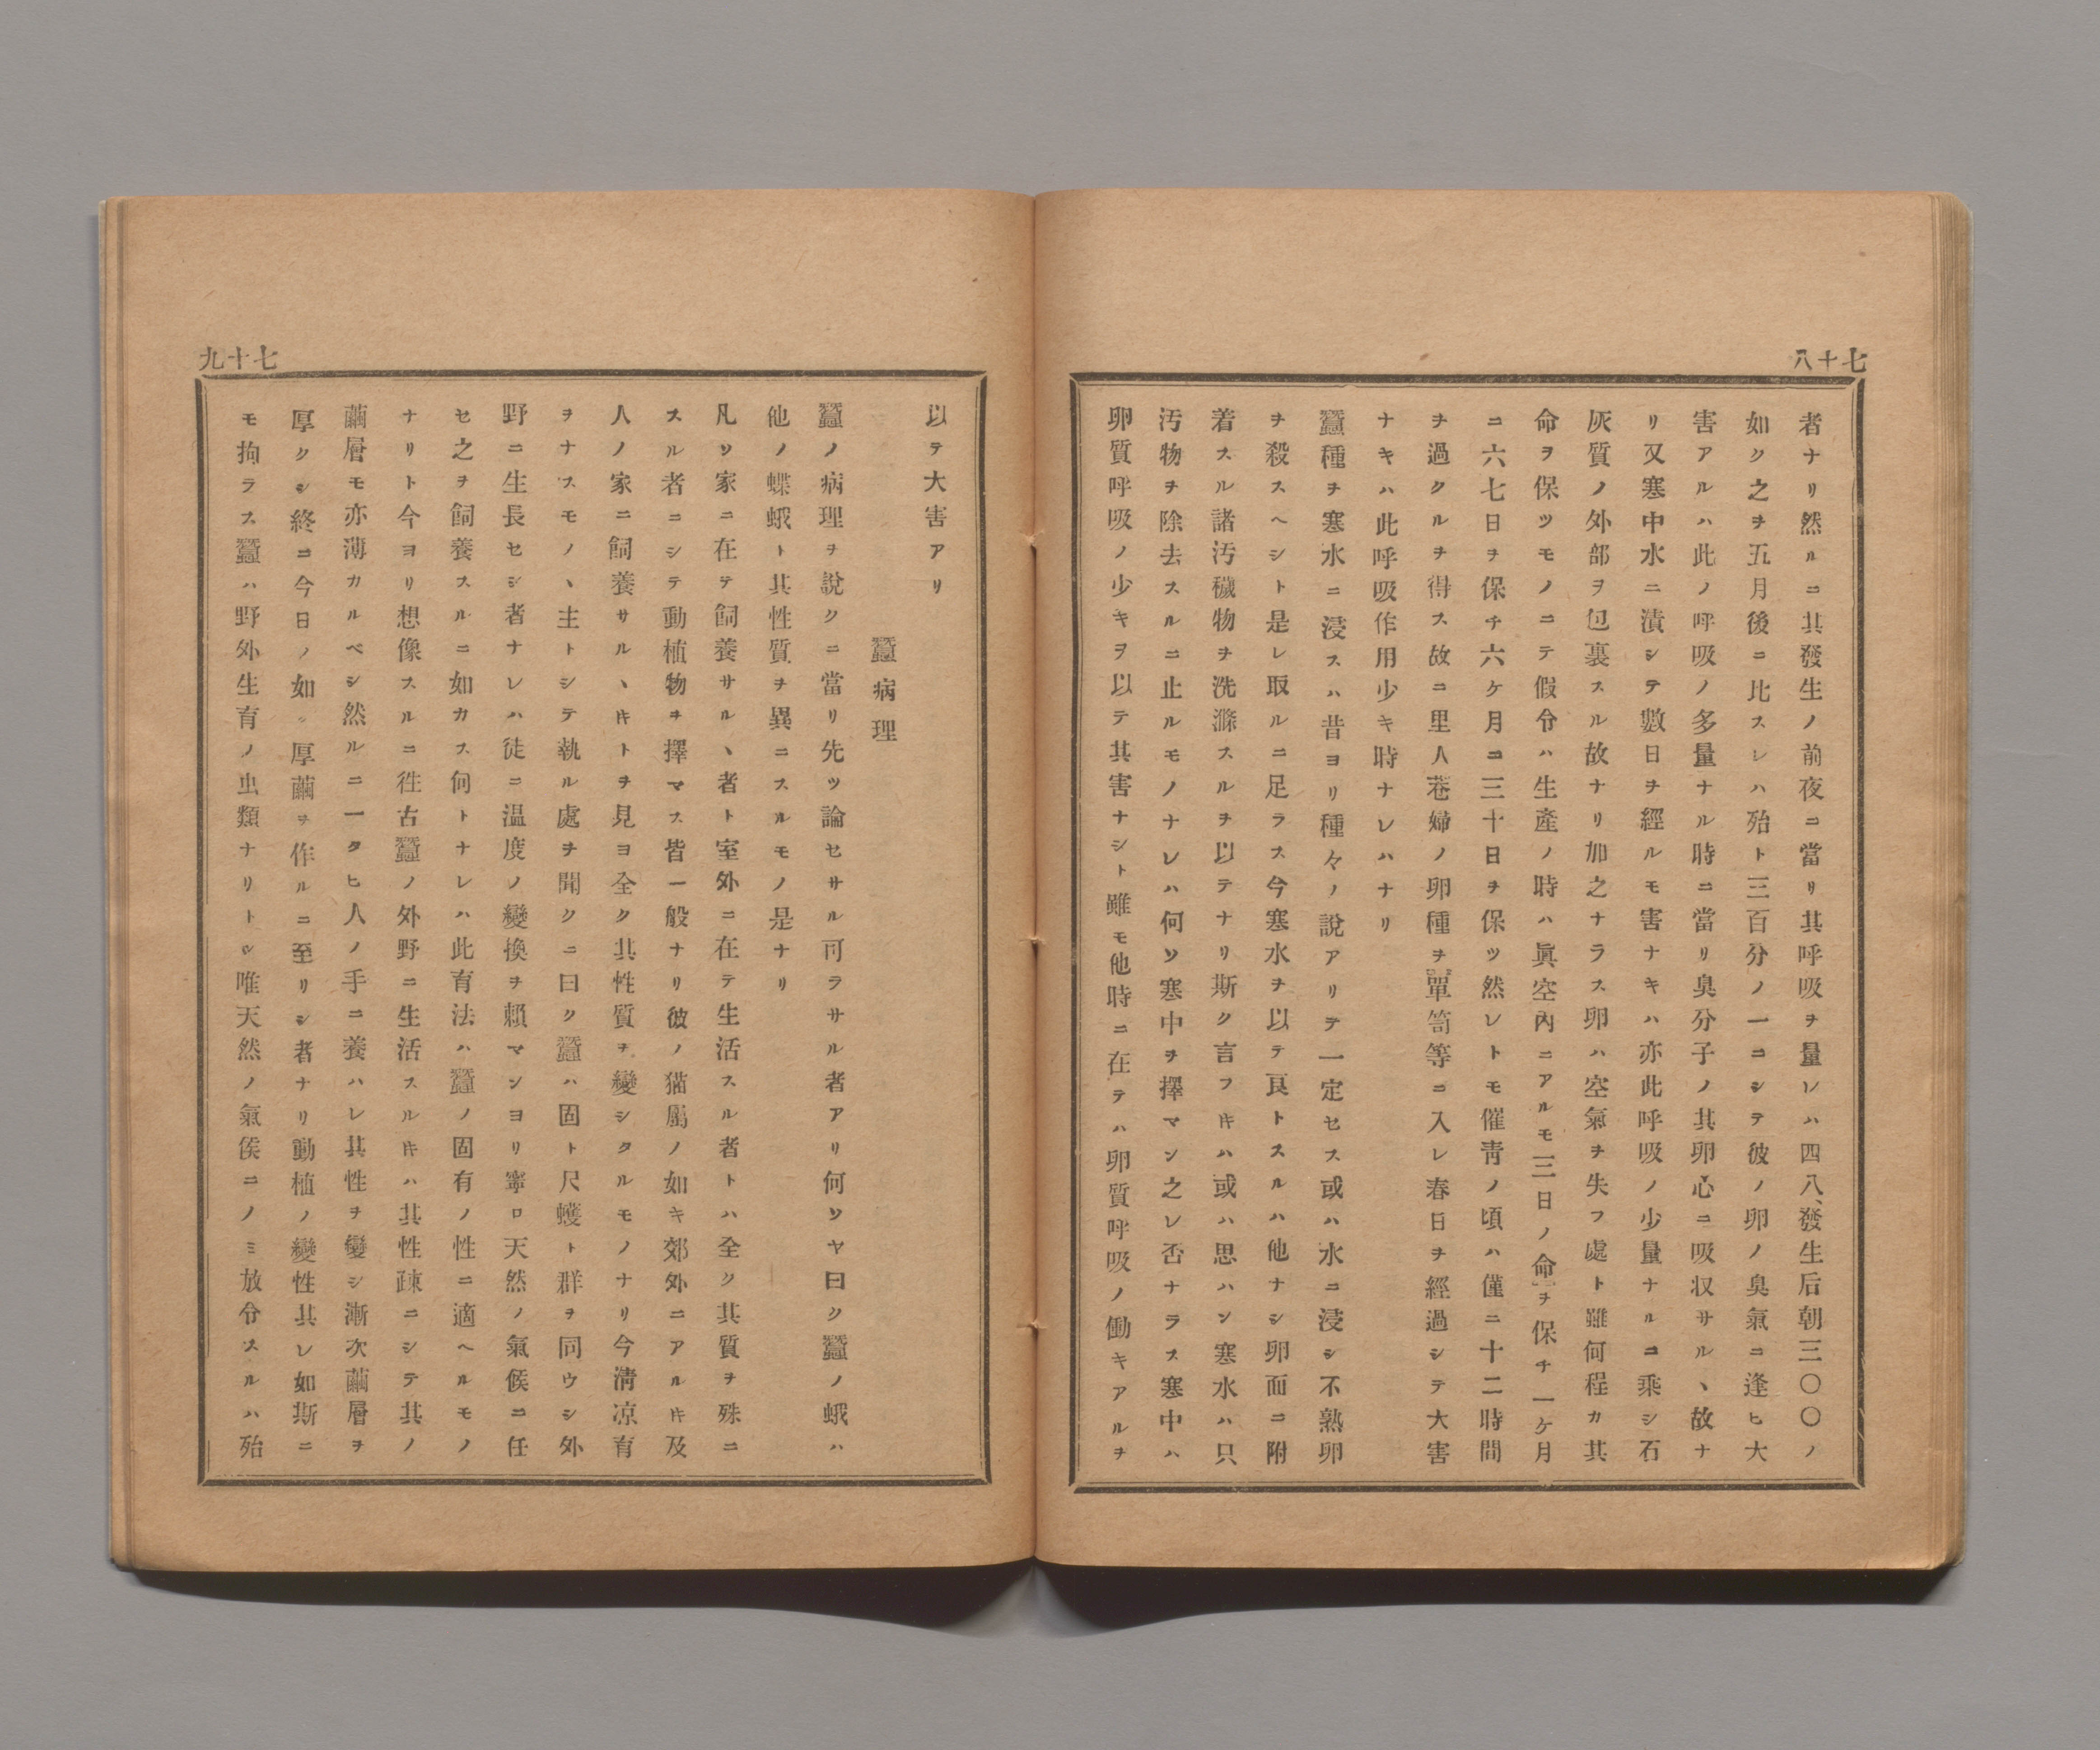 七十八
者ナリ然ルニ其發生ノ前夜ニ當リ其呼吸ヲ量レハ四八、發生后朝三〇〇ノ
如ク之ヲ五月後ニ比スレハ殆ト三百分ノ一ニシテ彼ノ卵ノ臭氣ニ逢ヒ大
害アルハ此ノ呼吸ノ多量ナル時ニ當リ臭分子ノ其卵心ニ吸収サルヽ故ナ
リ又寒中水ニ漬シテ數日ヲ經ルモ害ナキハ亦此呼吸ノ少量ナルニ乘シ石
灰質ノ外部ヲ包裹スル故ナリ加之ナラス卵ハ空氣ヲ失フ處ト雖何程カ其
命ヲ保ツモノニテ假令ハ生產ノ時ハ眞空內ニアルモ三日ノ命ヲ保チ一ケ月
ニ六七日ヲ保チ六ケ月ニ三十日ヲ保ツ然レトモ催靑ノ頃ハ僅ニ十二時間
ヲ過クルヲ得ス故ニ里人巷婦ノ卵種ヲ單笥等ニ入レ春日ヲ經過シテ大害
ナキハ此呼吸作用少キ時ナレハナリ
蠶種ヲ寒水ニ浸スハ昔ヨリ種々ノ說アリテ一定セス或ハ水ニ浸シ不熟卵
ヲ殺スヘシト是レ取ルニ足ラス今寒水ヲ以テ良トスルハ他ナシ卵面ニ附
着スル諸汚穢物ヲ洗滌スルヲ以テナリ斯ク言フ𪜈ハ或ハ思ハン寒水ハ只
汚物ヲ除去スルニ止ルモノナレハ何ソ寒中ヲ擇マン之レ否ナラス寒中ハ
卵質呼吸ノ少キヲ以テ其害ナシト雖モ他時ニ在テハ卵質呼吸ノ働キアルヲ
七十九
以テ大害アリ
蠶病理
蠶ノ病理ヲ說クニ當リ先ツ論セサル可ラサル者アリ何ソヤ曰ク蠶ノ蛾ハ
他ノ蝶蛾ト其性質ヲ異ニスルモノ是ナリ
凡ソ家ニ在テ飼養サルヽ者ト室外ニ在テ生活スル者トハ全ク其質ヲ殊ニ
スル者ニシテ動植物ヲ擇マス皆一般ナリ彼ノ猫屬ノ如キ郊外ニアル𪜈及
人ノ家ニ飼養サルヽ𪜈トヲ見ヨ全ク其性質ヲ變シタルモノナリ今淸凉育
ヲナスモノヽ主トシテ執ル處ヲ聞クニ曰ク蠶ハ固ト尺蠖ト群ヲ同ウシ外
野ニ生長セシ者ナレハ徒ニ温度ノ變換ヲ賴マンヨリ寧ロ天然ノ氣候ニ任
セ之ヲ飼養スルニ如カス何トナレハ此育法ハ蠶ノ固有ノ性ニ適ヘルモノ
ナリト今ヨリ想像スルニ徃古蠶ノ外野ニ生活スル𪜈ハ其性疎ニシテ其ノ
繭層モ亦薄カルベシ然ルニ一タヒ人ノ手ニ養ハレ其性ヲ變シ漸次繭層ヲ
厚クシ終ニ今日ノ如ク厚繭ヲ作ルニ至リシ者ナリ動植ノ變性其レ如斯ニ
モ拘ラス蠶ハ野外生育ノ虫類ナリトシ唯天然ノ氣候ニノミ放令スルハ殆